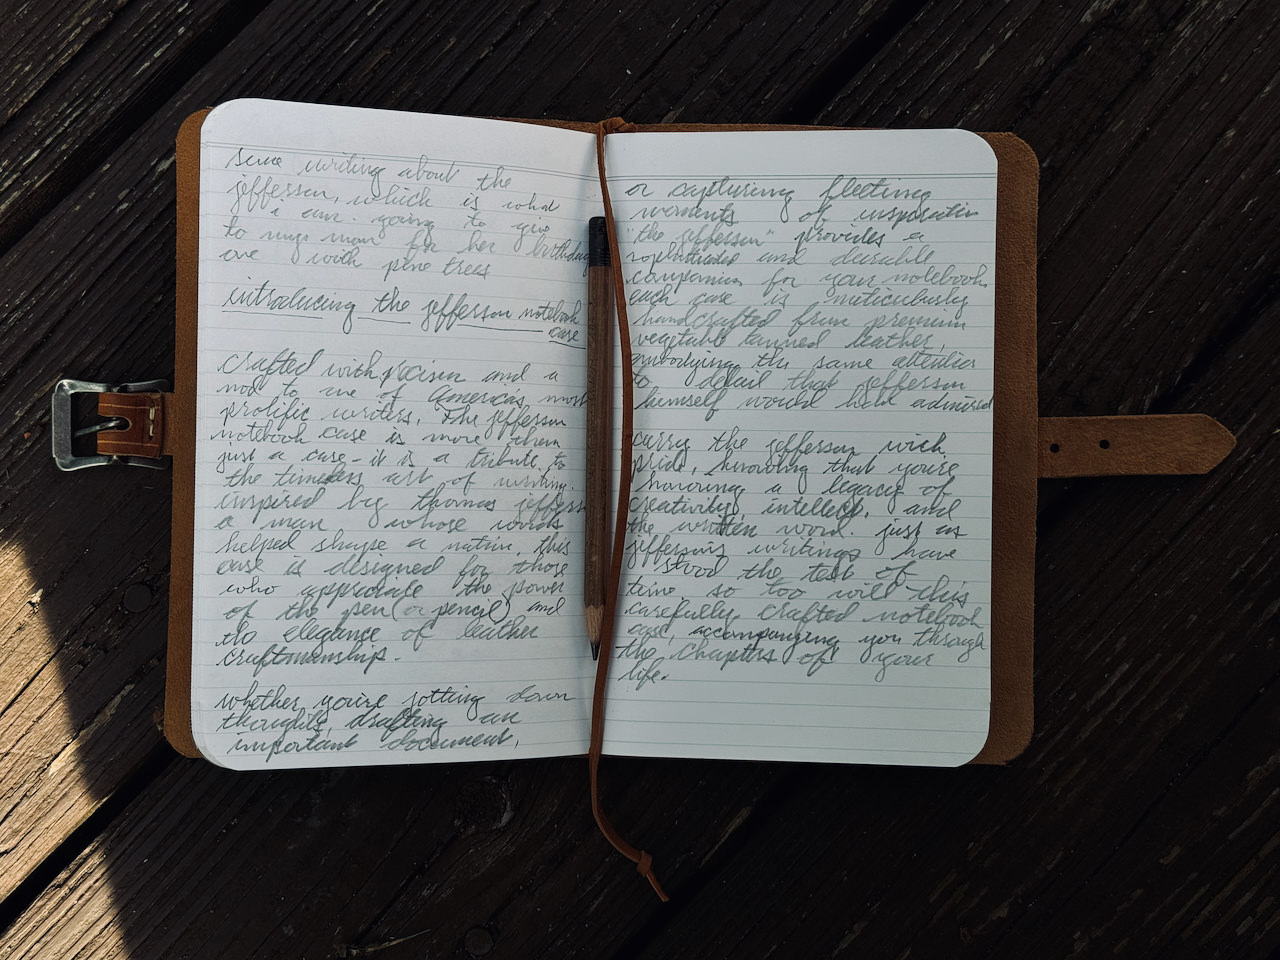 some writing about the
jefferson, which is what
i am going to give
to my mom for her birthday
one with pine trees
introducing the jefferson notebook
case
crafted with precision and a
nod to one of America's most
prolific writers, the jefferson
notebook case is more than
just a case - it is a tribute to
the timeless art of writing.
inspired by thomas jefferson
a man whose words
helped shape a nation, this
case is designed for those
who appreciate the power
of the pen (or pencil) and
the elegance of leather
craftmanship.
whether you're jotting down
thoughts, drafting an
important document,
or capturing fleeting
moments of inspiration
"the jefferson" provides a
sophisticated and durable
companion for your notebook.
each case is meticulously
handcrafted from premium
vegetable tanned leather,
embodying the same attention
to detail that jefferson
himself would have admired
carry the jefferson with
pride, knowing that you're
honoring a legacy of
creativity, intellect, and
the written word. just as
jefferson's writings have
stood the test of
time, so too will this
carefully crafted notebook
case, accompanying you through
the chapters of your
life.